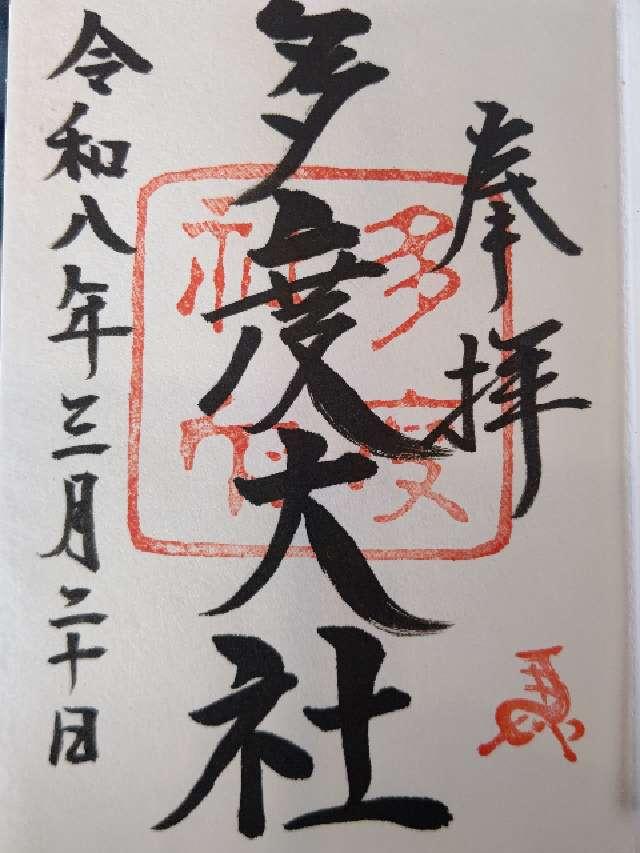 奉拝
多度大社
令和八年三月二十日
多度
神社
馬